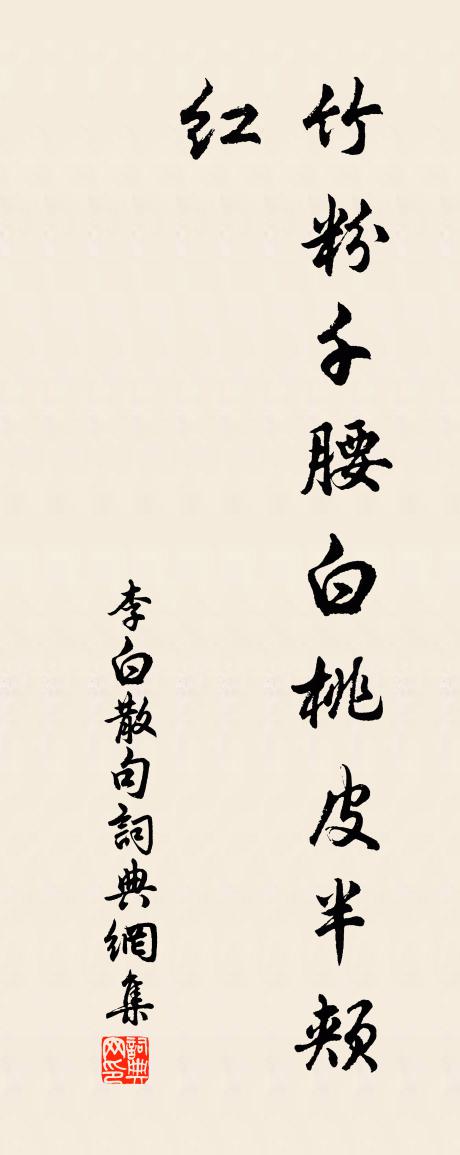 竹粉千腰白桃皮半頰
紅
李白散句詞典網集
詞典
网印